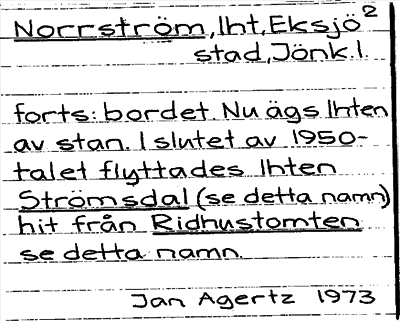 Norrström, lht, Eksjö 2
stad, Jönk. l.
forts: bordet. Nu ägs lhten
av stan. I slutet av 1950-
talet flyttades lhten
Strömsdal (se detta namn)
hit från Ridhustomten
se detta namn.
Jan Agertz 1973